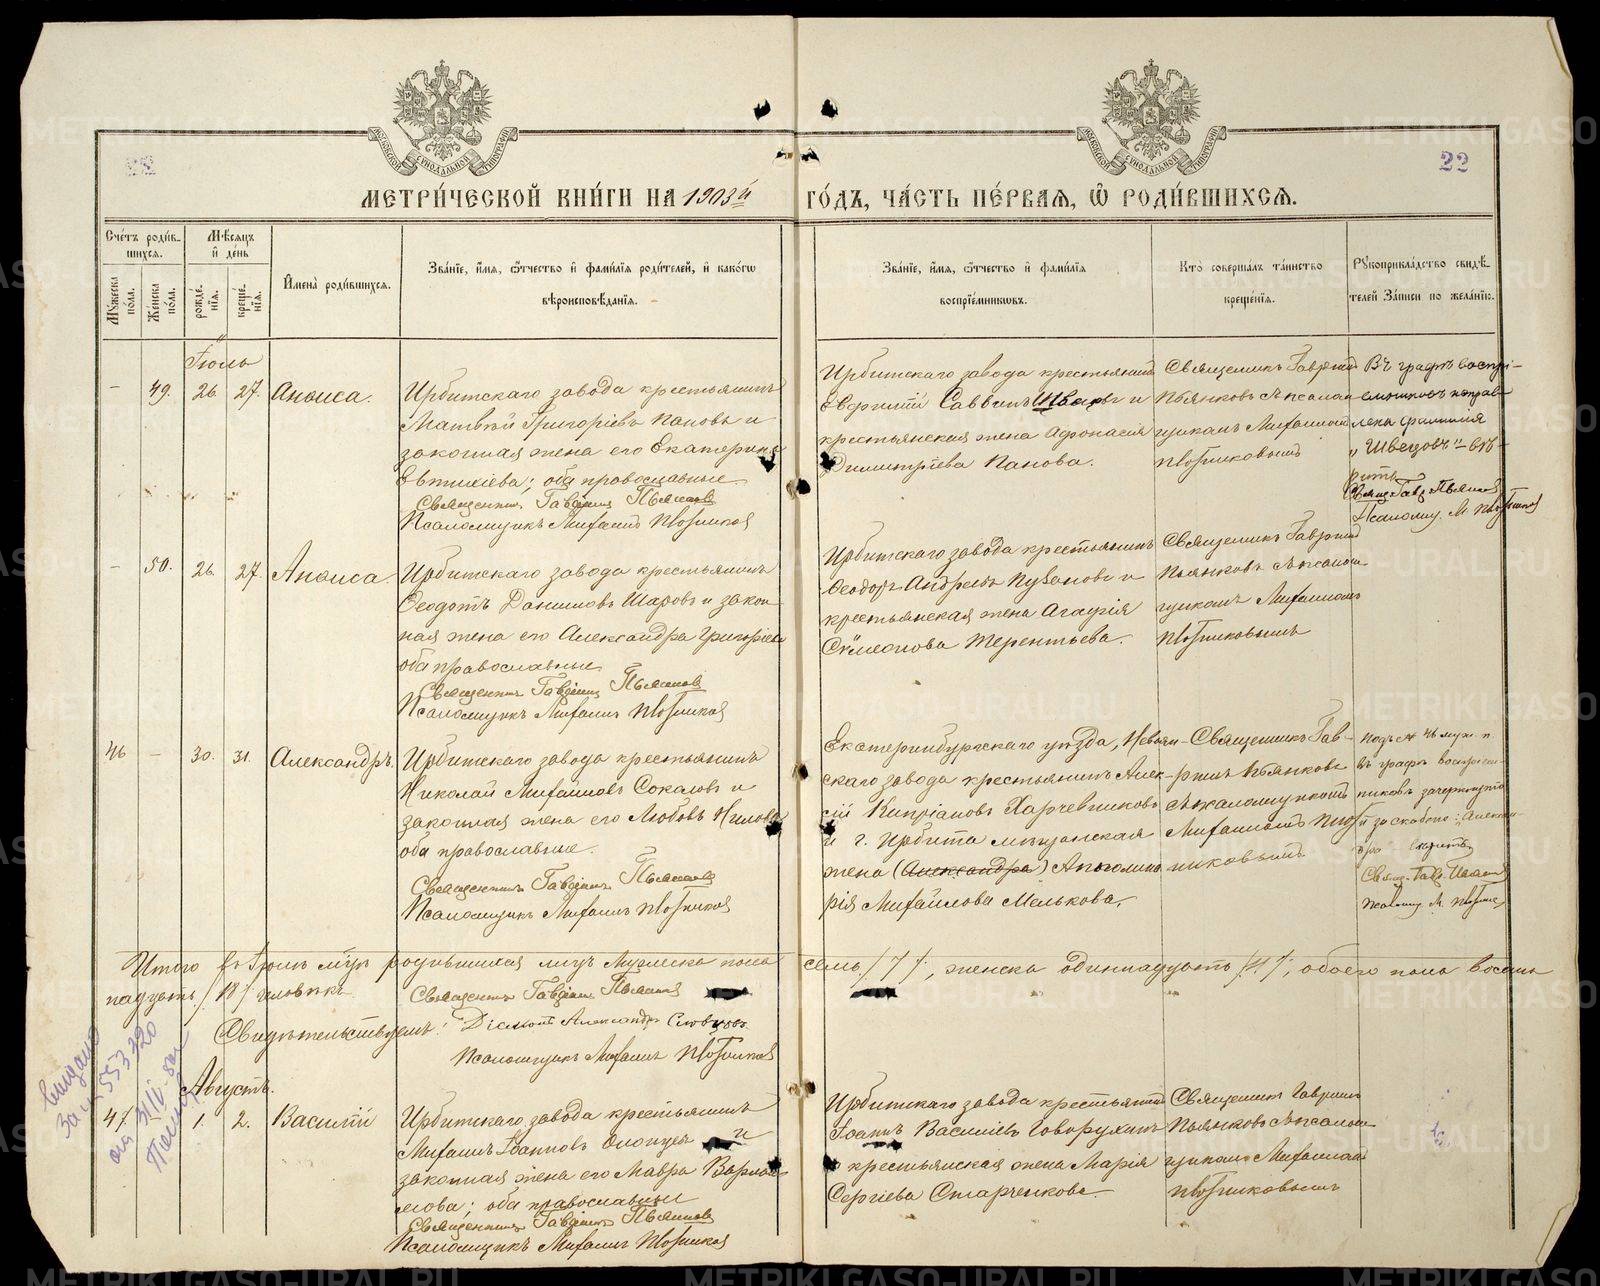 22
МЕТРИ́ЧЕСКОЙ КНИ́ГИ НА 1903й ГО́ДЪ, ЧА́СТЬ ПЕ́РВАѦ, Ѡ҆ РОДИ́ВШИХСѦ.
Сче́тъ роди́в-
шихсѧ.
Мꙋ́жеска по́ла.
Же́нска по́ла.
Мѣ́сѧцъ
и҆ де́нь
рожде́нїѧ.
креще́нїѧ.
И҆мена̀ роди́вшихсѧ.
Зва́нїе, и҆́мѧ, ѻ҆́тчество и҆ фами́лїѧ роди́телей, и҆ како́гѡ
вѣроисповѣ́данїѧ.
Зва́нїе, и҆́мѧ, ѻ҆́тчество и҆ фами́лїѧ
воспрїе́мникѡвъ.
Кто̀ соверша́лъ та́инство
креще́нїѧ.
Рꙋкоприкла́дство свидѣ́-
телей за́писи по жела́нїю.
Іюль
- 49. 26. 27. Анѳиса.
Ирбитскаго завода крестьянинъ
Матвѣй Григорiевъ Пановъ и
законная жена его Екатерина
Евтихiева; оба православные
Священникъ Гаврiилъ Пьянковъ
Псаломщикъ Михаилъ
Ирбитскаго завода крестьянинъ
Саввинъ Швецовъ и
крестьянская жена Афонасiя
Димитрiева Панова.
Священникъ Гаврiилъ
Пьянковъ съ псалом-
щикомъ Михаиломъ
Въ графѣ воспрi-
емниковъ поправ-
лена фамилiя
"Швецовъ" - вѣ-
рить
Свящ. Гавр. Пьянковъ
Псаломщ. М.
- 50. 26. 27. Анѳиса.
Ирбитскаго завода крестьянинъ
Ѳеодотъ Данииловъ Шаровъ и закон-
ная жена его Александра Григорiева
оба православные
Священникъ Гаврiилъ Пьянковъ
Псаломщикъ Михаилъ
Ирбитскаго завода крестьянинъ
Ѳеодоръ Андреевъ и
крестьянская жена Агафiя
Сѵмеонова Терентьева.
Священникъ Гаврiилъ
Пьянковъ съ псалом-
щикомъ Михаиломъ
46 - 30. 31. Александръ.
Ирбитскаго завода крестьянинъ
Николай Михаиловъ Соколовъ и
законная жена его Любовь Нилова
оба православные.
Священникъ Гаврiилъ Пьянковъ
Псаломщикъ Михаилъ
Екатеринбургскаго уѣзда, Невьян-
скаго завода крестьянинъ Алек-
сiй Кипрiановъ Харчевниковъ
и г. Ирбита мѣщанская
жена (Александра) Аполлина-
рiя Михайлова Мелькова.
Священникъ Гав-
рiилъ Пьянковъ
съ псаломщикомъ
Михаиломъ
Подъ № 46 муж. п.
въ графѣ воспрiем-
никовъ зачеркнуто
и за скобою: "Алексан-
дра" - вѣрить
Свящ. Гавр. Пьянковъ
Псаломщ. М.
Итого въ Iюлѣ мѣс. родившихся лицъ Мужеска пола семь /7/, женска одиннадцать /11/, обоего пола восем-
надцать /18/ человѣкъ
Священникъ Гаврiилъ Пьянковъ
Свидѣтельствуемъ: Дiаконъ Александръ Словцовъ
Псаломщикъ Михаилъ
Августъ.
47. 1. 2. Василiй
Ирбитскаго завода крестьянинъ
Михаилъ Iоанновъ и
законная жена его Мавра Варла-
мова; оба православные
Священникъ Гаврiилъ Пьянковъ
Псаломщикъ Михаилъ
Ирбитскаго завода крестьянинъ
Iоаннъ Василiевъ Говорухинъ
и крестьянская жена Марiя
Сергiева Старченкова
Священникъ Гаврiилъ
Пьянковъ съ псалом-
щикомъ Михаиломъ
METRIKI.GASO-URAL.RU